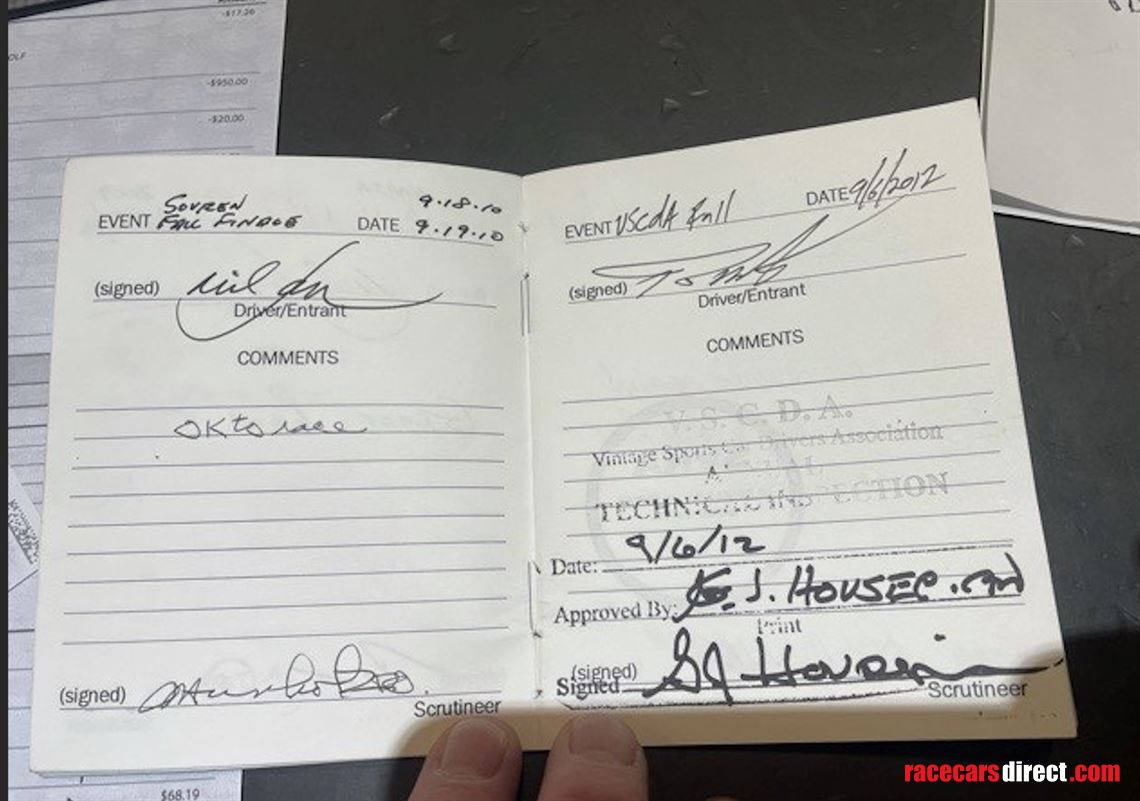 -$17.26
OLF
-$950.00
-$20.00
SOVREN
EVENT FALL FINALE DATE 9.18.10
9.19.10
(signed)
Driver/Entrant
COMMENTS
OK to race
(signed)
Scrutineer
EVENT VSCDA Fall DATE 9/6/2012
(signed)
Driver/Entrant
COMMENTS
V.S.C.D.A.
Vintage Sports Car Drivers Association
ANNUAL
TECHNICAL INSPECTION
Date: 9/6/12
Approved By: J.
Print
(signed)
Signed
Scrutineer
$68.19
racecarsdirect.com